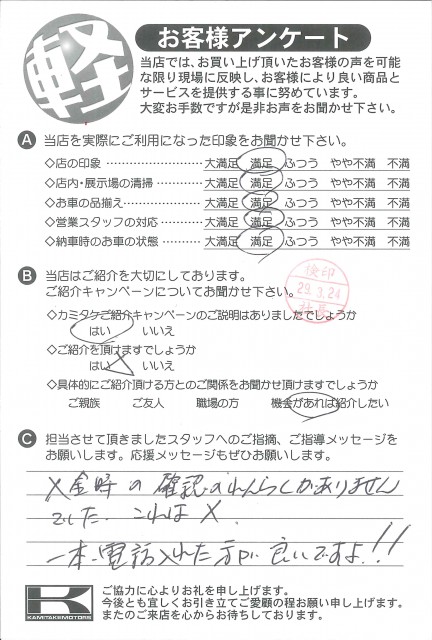 軽
お客様アンケート
当店では、お買い上げ頂いたお客様の声を可能
な限り現場に反映し、お客様により良い商品と
サービスを提供する事に努めています。
大変お手数ですが是非お声をお聞かせ下さい。
A 当店を実際にご利用になった印象をお聞かせ下さい。
◇店の印象 大満足 満足 ふつう やや不満 不満
◇店内・展示場の清掃 大満足 満足 ふつう やや不満 不満
◇お車の品揃え 大満足 満足 ふつう やや不満 不満
◇営業スタッフの対応 大満足 満足 ふつう やや不満 不満
◇納車時のお車の状態 大満足 満足 ふつう やや不満 不満
B 当店はご紹介を大切にしております。
ご紹介キャンペーンについてお聞かせ下さい。
検印
29.3.24
社長
◇カミタケご紹介キャンペーンのご説明はありましたでしょうか
はい いいえ
◇ご紹介を頂けますでしょうか
はい いいえ
◇具体的にご紹介頂ける方とのご関係をお聞かせ頂けますでしょうか
ご親族 ご友人 職場の方 機会があれば紹介したい
C 担当させて頂きましたスタッフへのご指摘、ご指導メッセージを
お願いします。応援メッセージもぜひお願いします。
入金時の確認のれんらくがありません
でした。これは X
一本、電話入れた方が良いですよ!!
K
KAMITAKEMOTORS
ご協力に心よりお礼を申し上げます。
今後とも宜しくお引き立てご愛顧の程お願い申し上げます。
またのご来店を心からお待ちしております。